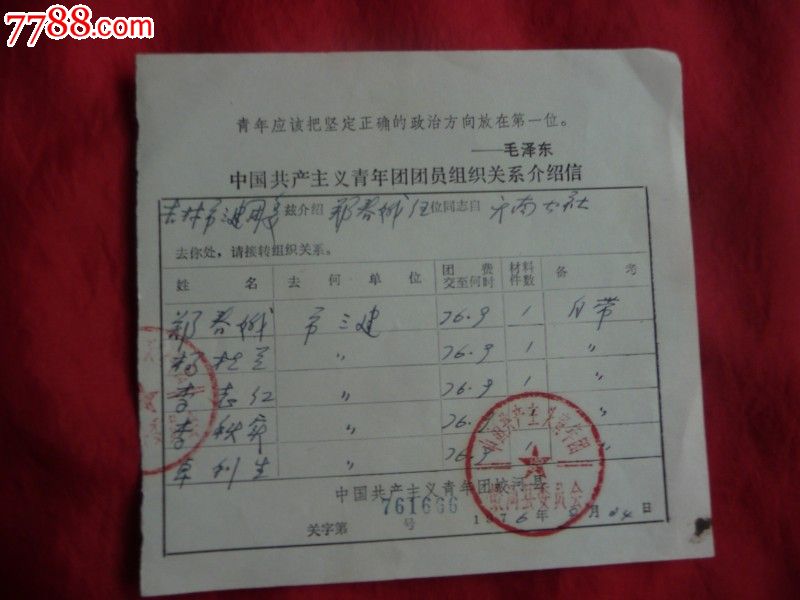 7788.com
青年应该把坚定正确的政治方向放在第一位。
——毛泽东
中国共产主义青年团团员组织关系介绍信
吉林市 兹介绍 位同志自
去你处，请接转组织关系。
姓名 去何单位 团费交至何时 材料件数 备考
郑春 市三建 76.9 1 自带
杨 〃 76.9 1 〃
李志红 〃 76.9 1 〃
李 〃 76.9 〃
利生 〃 76.9 1 〃
中国共产主义青年团蛟河县
关字第 761666 号 1976年9月24日
中国共产主义青年团
蛟河县委员会